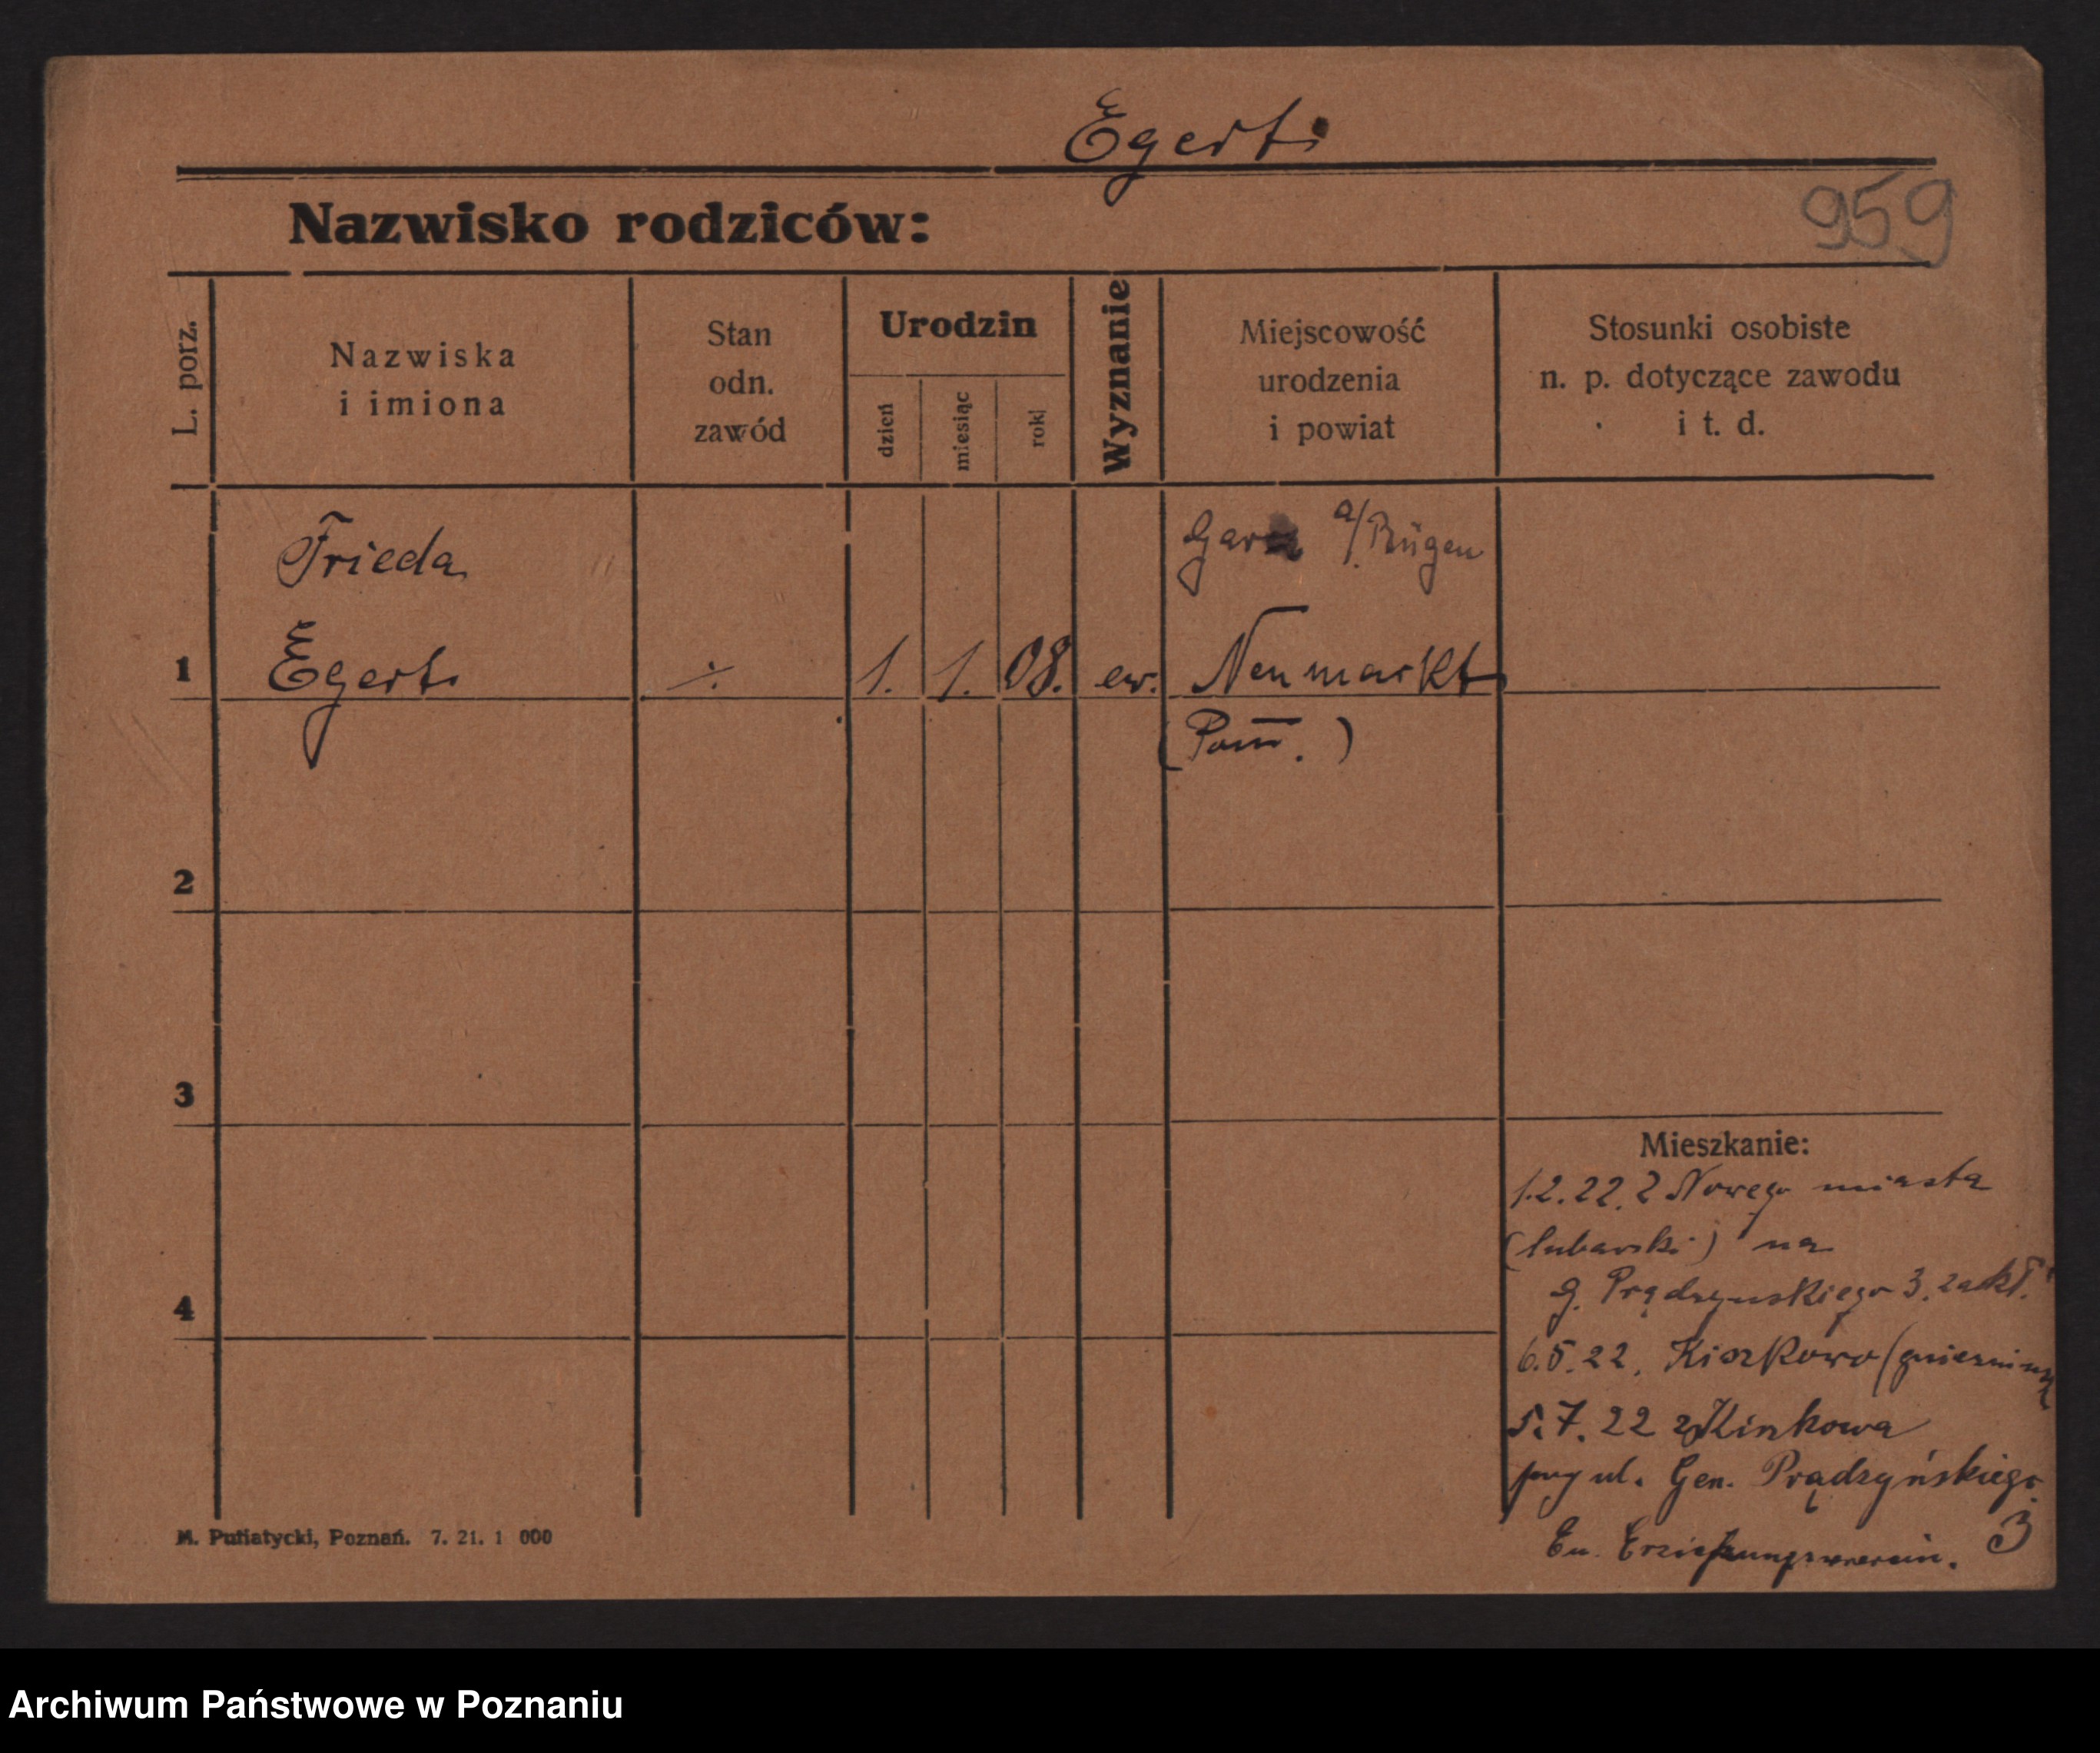 Egert.
Nazwisko rodziców:
959
L. porz.
Nazwiska
i imiona
Stan
odn.
zawód
Urodzin
dzień
miesiąc
rok
Wyznanie
Miejscowość
urodzenia
i powiat
Stosunki osobiste
n. p. dotyczące zawodu
i t. d.
Frieda
Garz a/Rügen
1 Egert. ÷ 1. 1. 08. ew. Neumarkt
(Pom.)
2
3
Mieszkanie:
1.2.22. z Nowego miasta
(lubawski) na
g. Prądzynskiego 3. zakł.
4
6.5.22. Kiszkowo
5.7.22
przy ul. Gen. Prądzyńskiego
3
Ev. Erziehungsverein.
M. Putiatycki, Poznań. 7. 21. 1 000
Archiwum Państwowe w Poznaniu